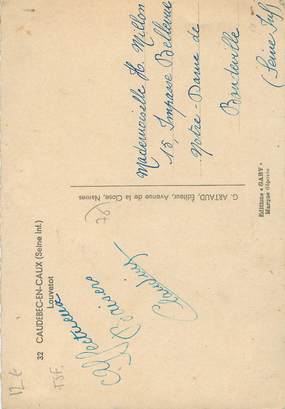 32 CAUDEBEC-EN-CAUX (Seine Inf.)
Louvetot
Affectueux
Baisers
G. ARTAUD, Éditeur, Avenue de la Close, Nantes
Editions "GABY"
Marque déposée
Mademoiselle H. Millon
15, Impasse Bellevue
Notre-Dame de
Bondeville
(Seine Inf)